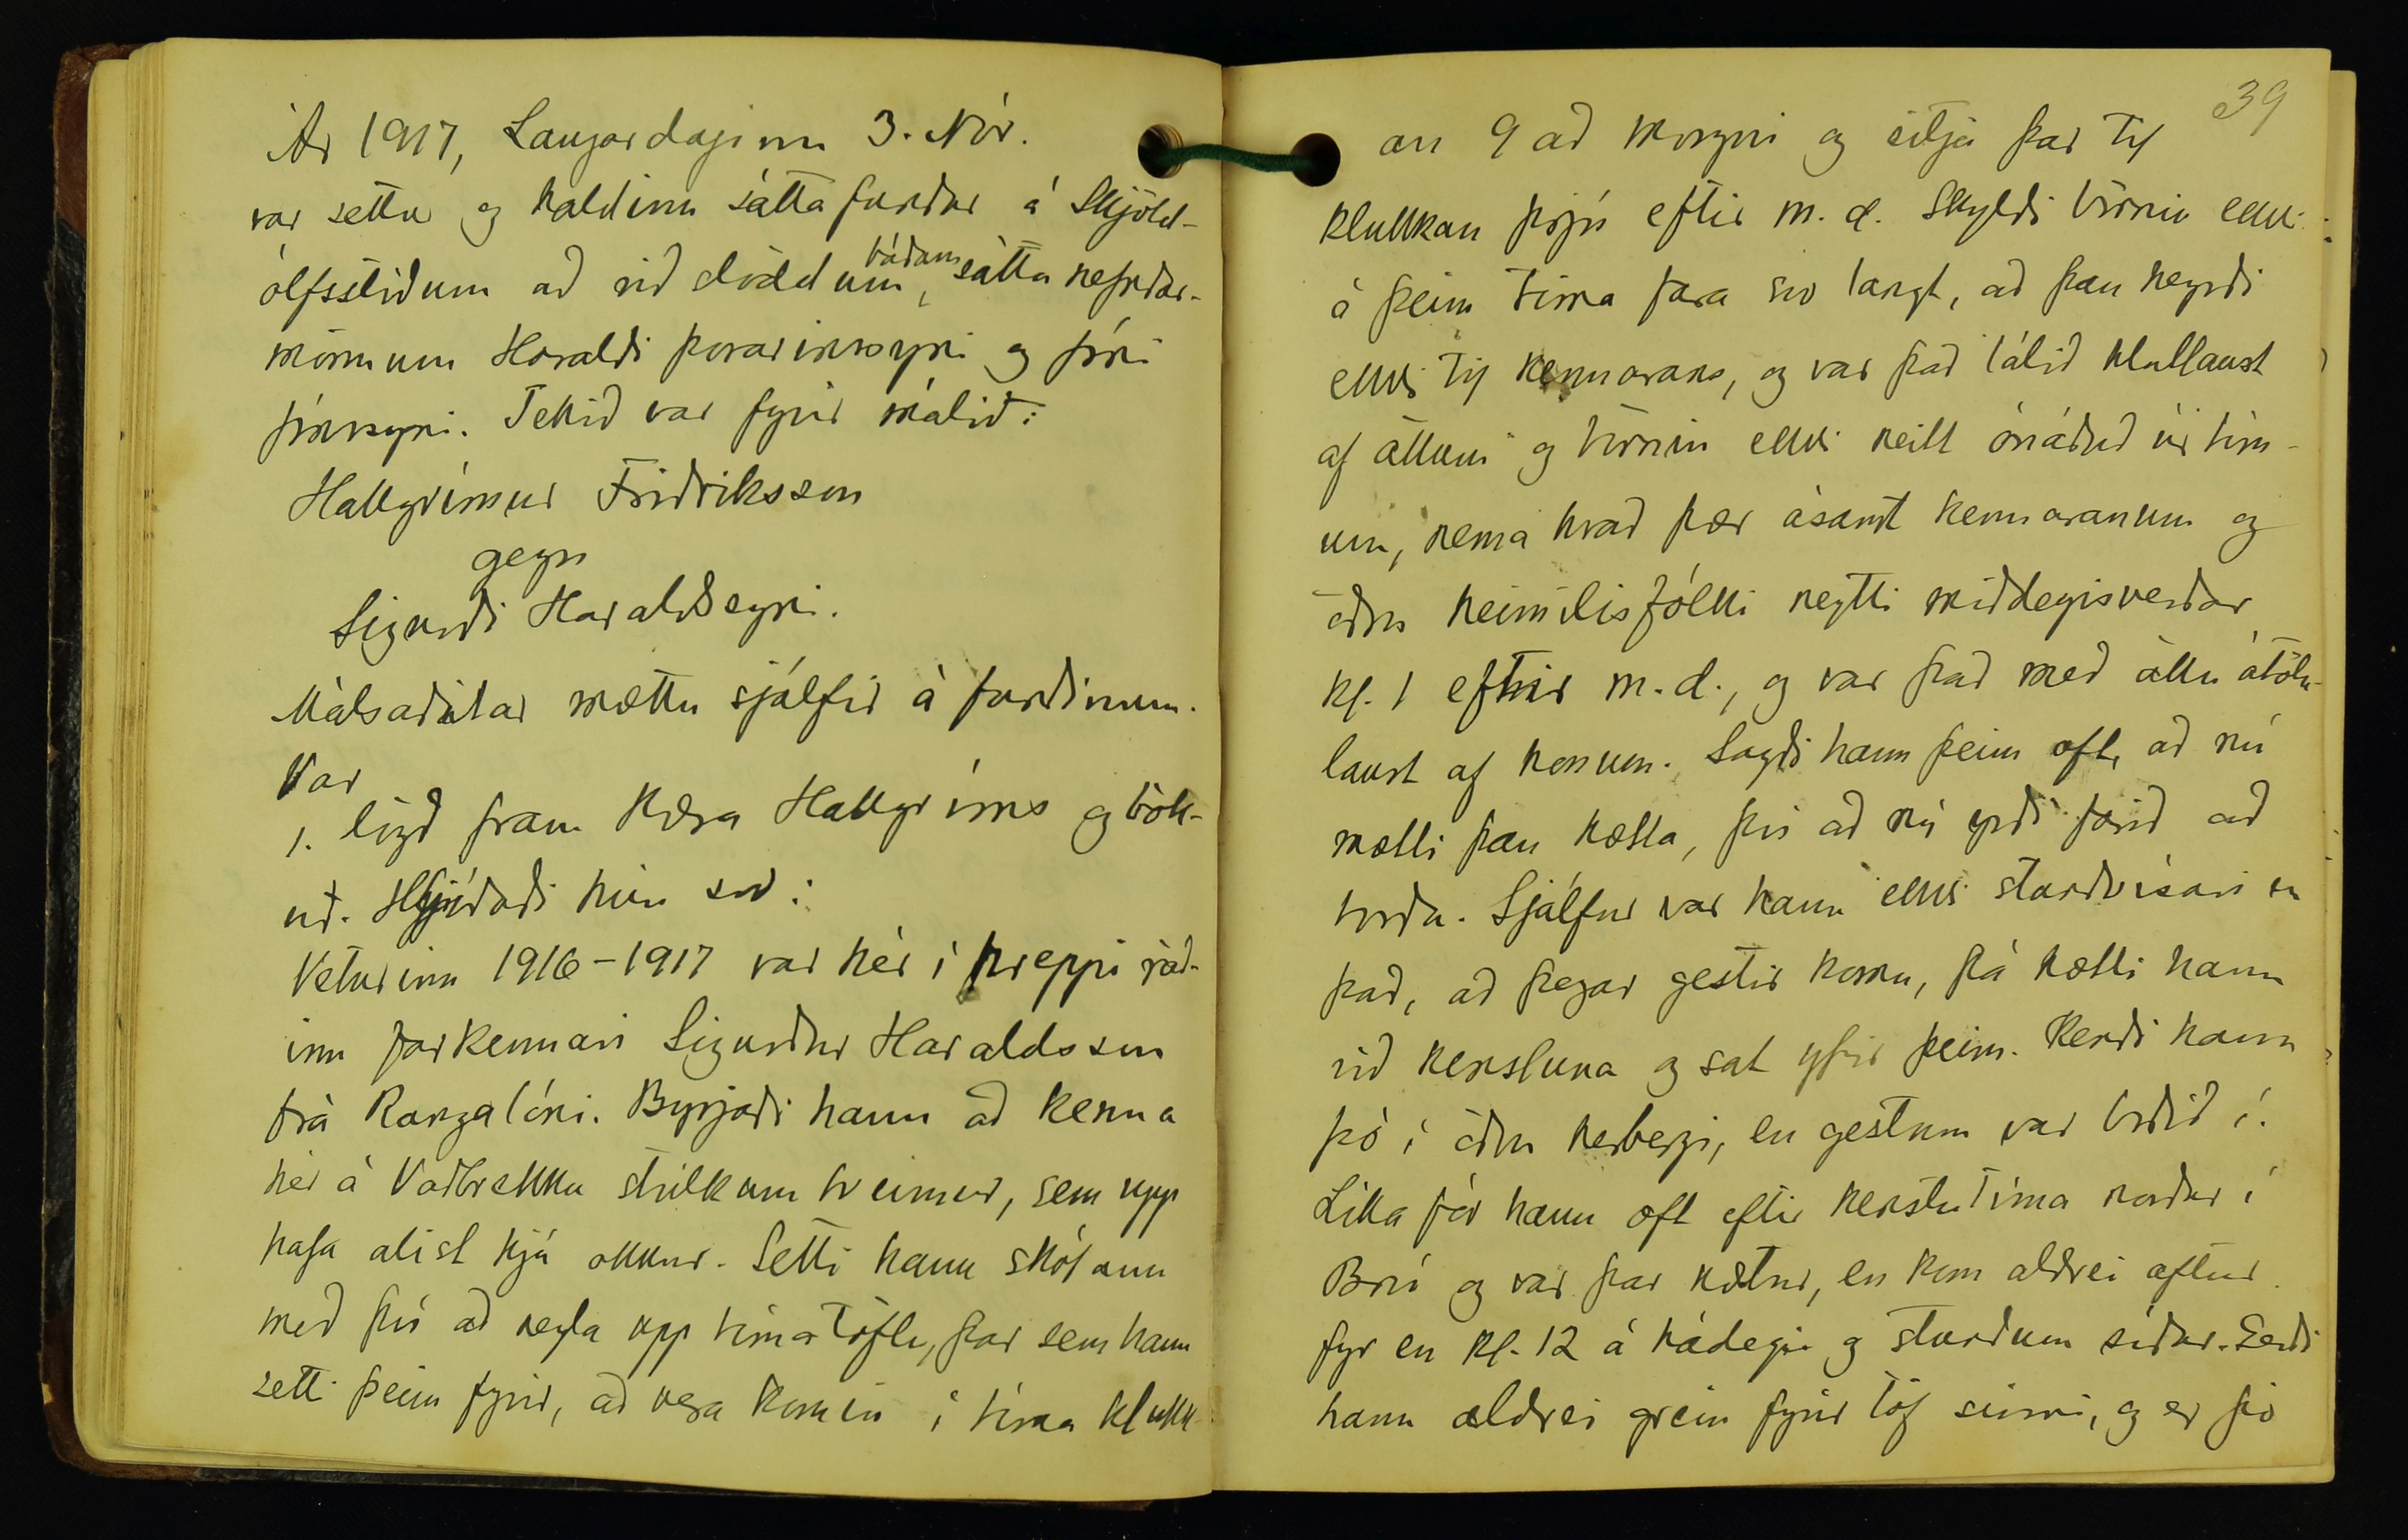 Ár 1917, Laugardaginn 3. Nóv.
var settur og haldinn sáttafundur á Skjöld-
ólfsstöðum að við stöddum báðum sáttanefndar-
mönnum Haraldi Þórarinssyni og Jóni
Jónssyni. Tekið var fyrir málið:
Hallgrímur Friðriksson
gegn
Sigurði Haraldssyni.
Málsaðilar mættu sjálfir á fundinum.
Var
1. lögð fram kæra Hallgríms og bók-
uð. Hljóðaði hún svo:
Veturinn 1916-1917 var hér í hreppi ráð-
inn farkennari Sigurður Haraldsson
frá Rangalóni. Byrjaði hann að kenna
hér á Vaðbrekku stúlkum tveimur, sem upp
hafa alist hjá okkur. Setti hann skólann
með því að negla upp tímatöflu, þar sem hann
setti þeim fyrir, að vera komin í tíma klukk-
39
an 9 að morgni og sitja þar til
klukkan þrjú eftir m. d. Skyldi börnin ekki
á þeim tíma fara svo langt, að þau heyrði
ekki til kennarans, og var það látið klaklaust
af öllum og börnin ekki neitt ónáðuð úr tím-
um, nema hvað þær ásamt kennaranum og
öðru heimilisfólki neytti miðdegisverðar
kl. 1 eftir m. d., og var það með öllu átölu-
laust af honum. Sagði hann þeim oft, að nú
mætti þau hætta, því að nú yrði farið að
borða. Sjálfur var hann ekki stundvísari en
það, að þegar gestir komu, þá hætti hann
við kensluna og sat yfir þeim. Kendi hann
þó í öðru herbergi, en gestum var boðið í.
Líka fór hann oft eftir kenslutíma norður í
Brú og var þar nætur, en kom aldrei aftur
fyr en kl. 12 á hádegi og stundum síðar. Gerði
hann aldrei grein fyrir töf sinni, og er þó